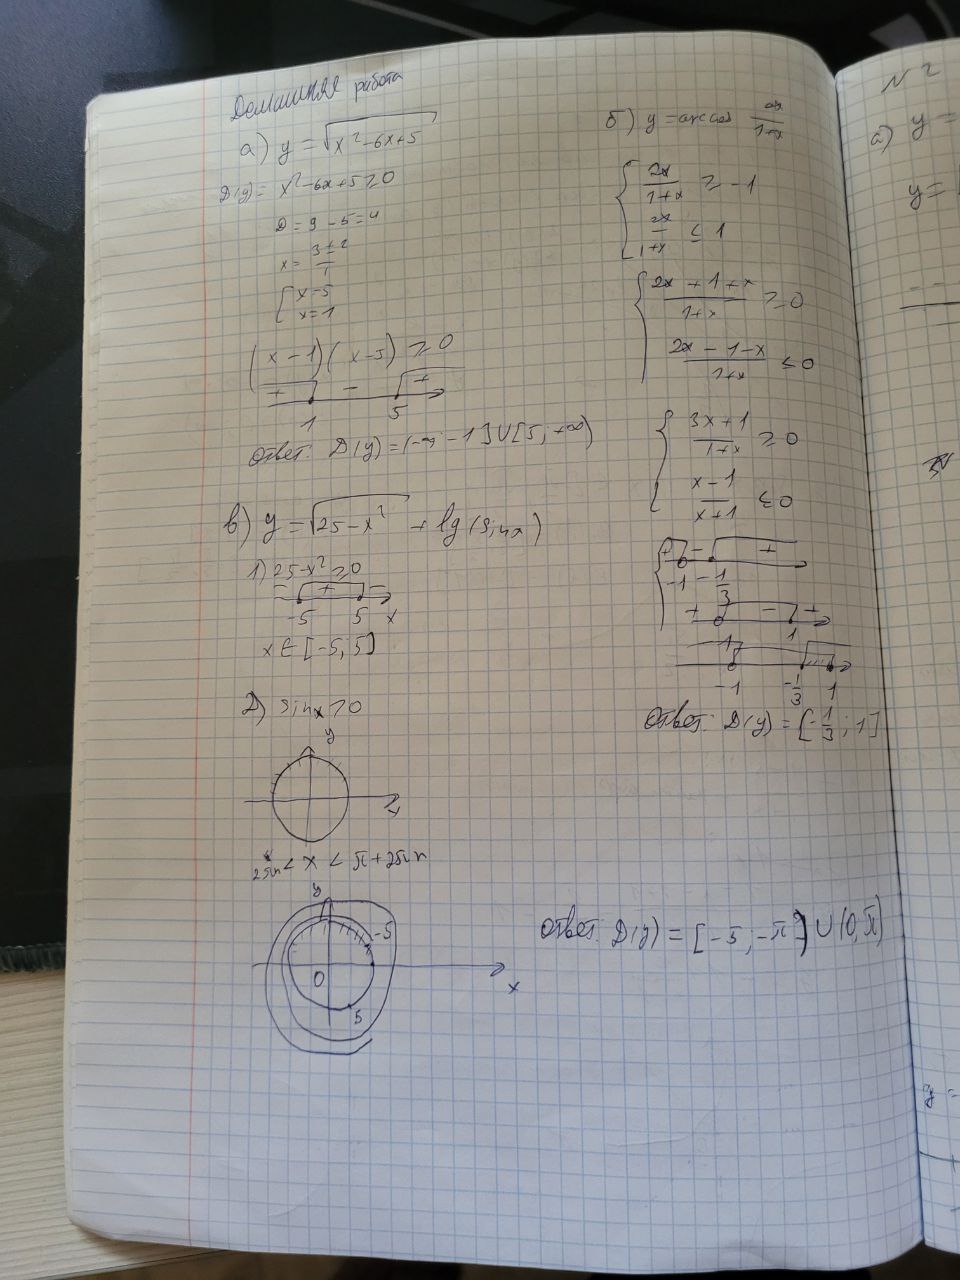 Домашняя работа
а) y = √(x² - 6x + 5)
D(y) = x² - 6x + 5 ≥ 0
D = 9 - 5 = 4
x = (3 ± 2)/1
[ x = 5
x = 1
(x - 1)(x - 5) ≥ 0
+ - +
1 5
Ответ: D(y) = (-∞; - 1] ∪ [5; +∞)
в) y = √(25 - x²) + lg(sin x)
1) 25 - x² ≥ 0
- + -
-5 5 x
x ∈ [-5; 5]
2) sin x > 0
y
x
2πn < x < π + 2πn
y
-5
0
x
5
Ответ: D(y) = [-5; -π) ∪ (0; π)
б) y = arccos 2x/(1+x)
{ 2x/(1+x) ≥ -1
2x/(1+x) ≤ 1
{ (2x + 1 + x)/(1+x) ≥ 0
(2x - 1 - x)/(1+x) ≤ 0
{ (3x + 1)/(1+x) ≥ 0
(x - 1)/(x + 1) ≤ 0
+ - +
-1 -1/3
+ - +
-1 1
-1 -1/3 1
Ответ: D(y) = [-1/3; 1]
N 2
а) y =
y =
y =